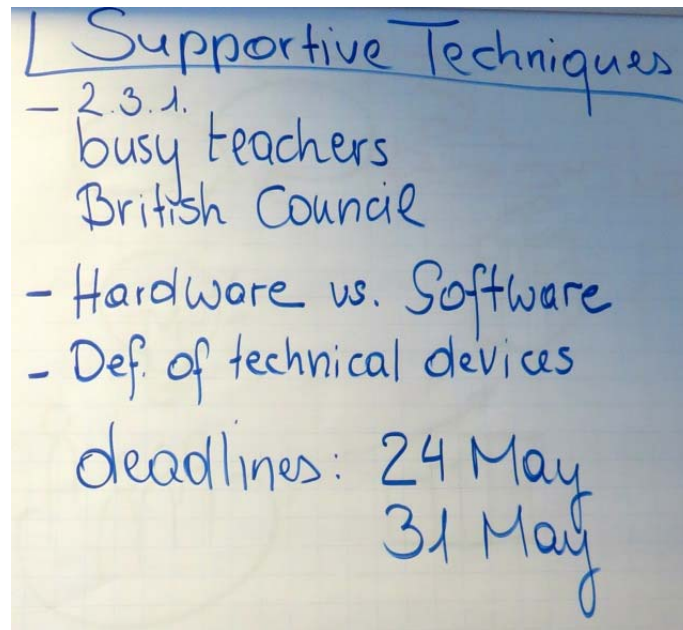 Supportive Techniques
- 2.3.1.
busy teachers
British Council
- Hardware vs. Software
- Def. of technical devices
deadlines: 24 May
31 May